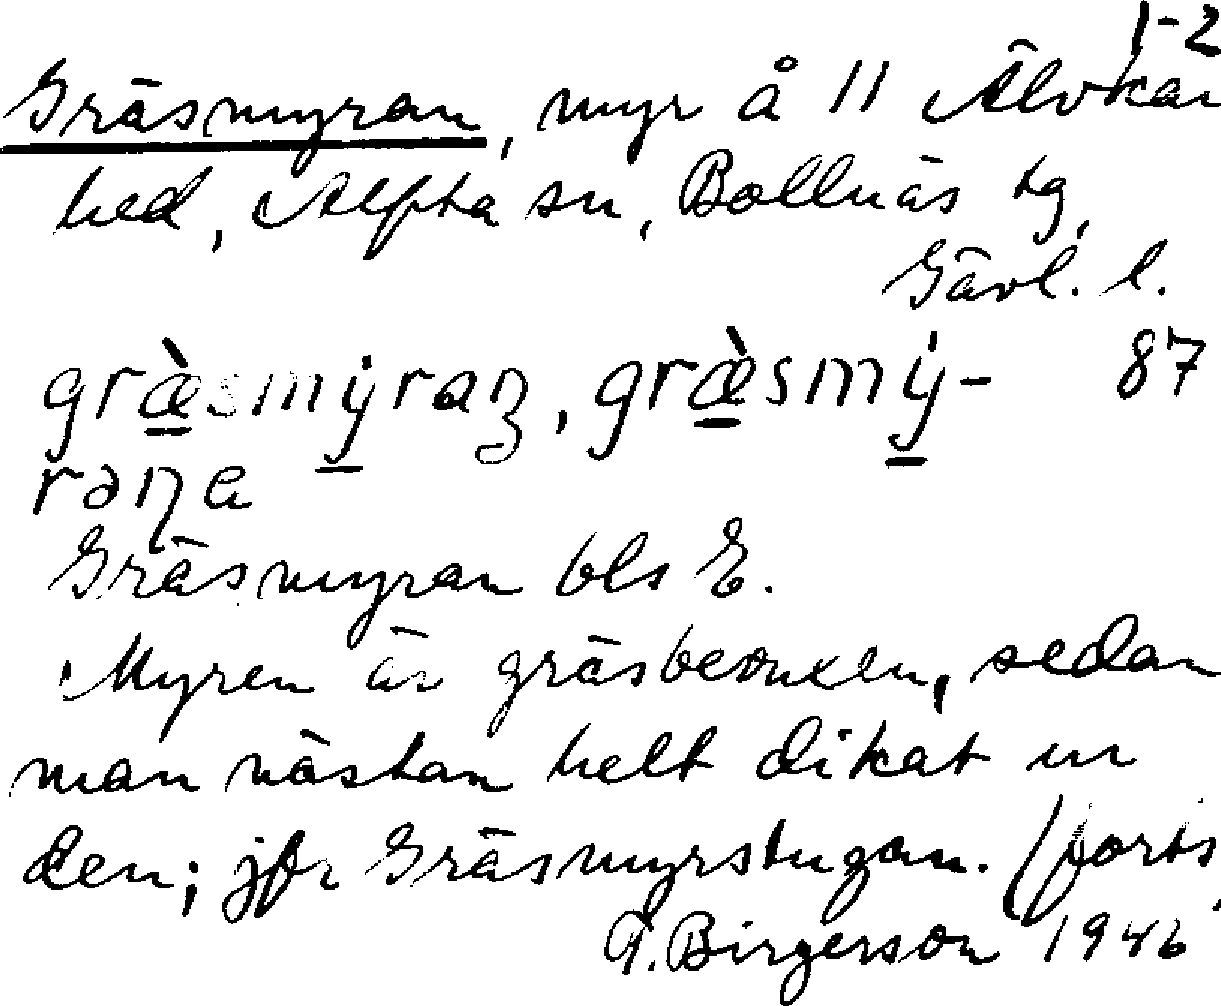 1-2
Gräsmyran, myr å 11 Älvkar
hed, Alfta sn, Bollnäs tg,
Gävl. l.
græ̀smýraɲ, græ̀smý- 87
rəɲa
Gräsmyran bls E.
Myren är gräsbevuxen, sedan
man nästan helt dikat ur
den; jfr Gräsmyrstugan. (forts.
T. Birgerson 1946